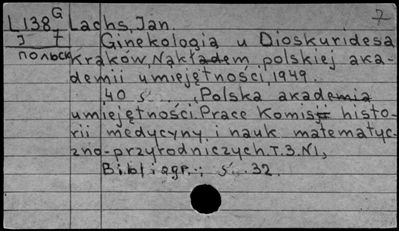 L138 G Lachs, Jan. 7
J 7 Ginekologia u Dioskuridesa
польск Kraków, Nakładem polskiej aka-
demii umiejętności, 1949.
40 s. , Polska akademia
umiejętności. Prace Komisji histo-
rii medycyny i nauk matematyc-
zno-przyrodniczych. T.3. N1,
Bibliogr.: s. 32.